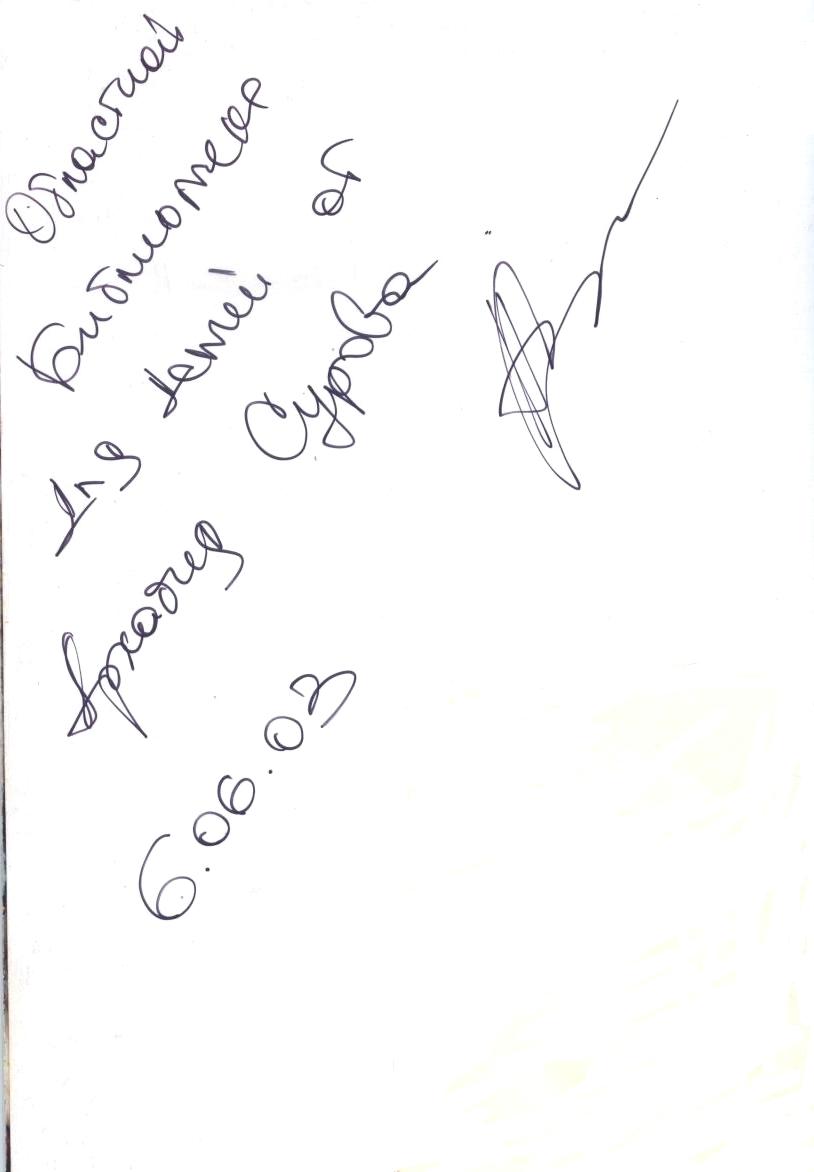 Областной
Библиотеке
для детей от
Аркадия Сурова
6.06.03